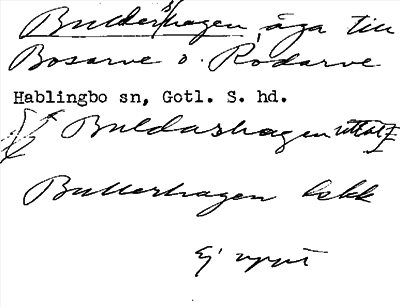 Buldershagen, äga till
Bosarve o. Rodarve
Hablingbo sn, Gotl. S. hd.
Buldashagen uttal
Bullerhagen lskk
Ej uppt